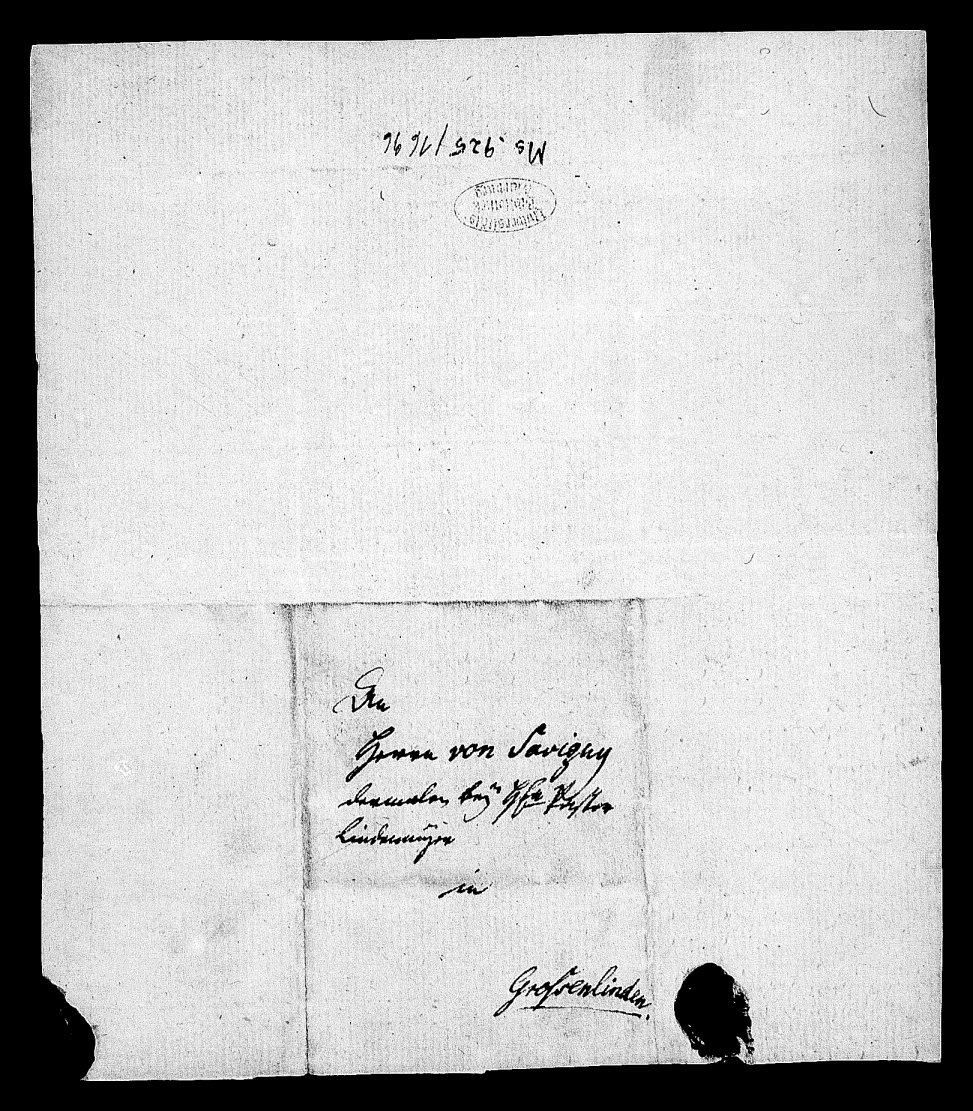 Ms. 925/1696
Universitäts-
Bibliothek
Marburg
An
Herrn von Savigny
dermalen bey Hrn Pastor
Lindenmeyer
in
Grossenlinden.